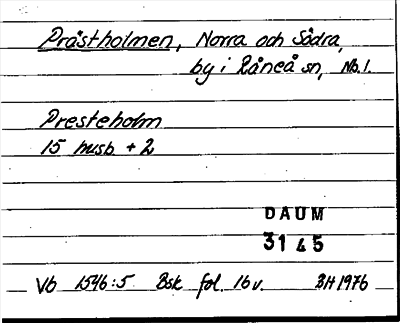 Prästholmen, Norra och Södra,
by i Råneå sn, Nb.l.
Presteholm
15 husb. + 2
DAUM
3145
Vb 1546:5 Bsk fol. 16v. BH 1976